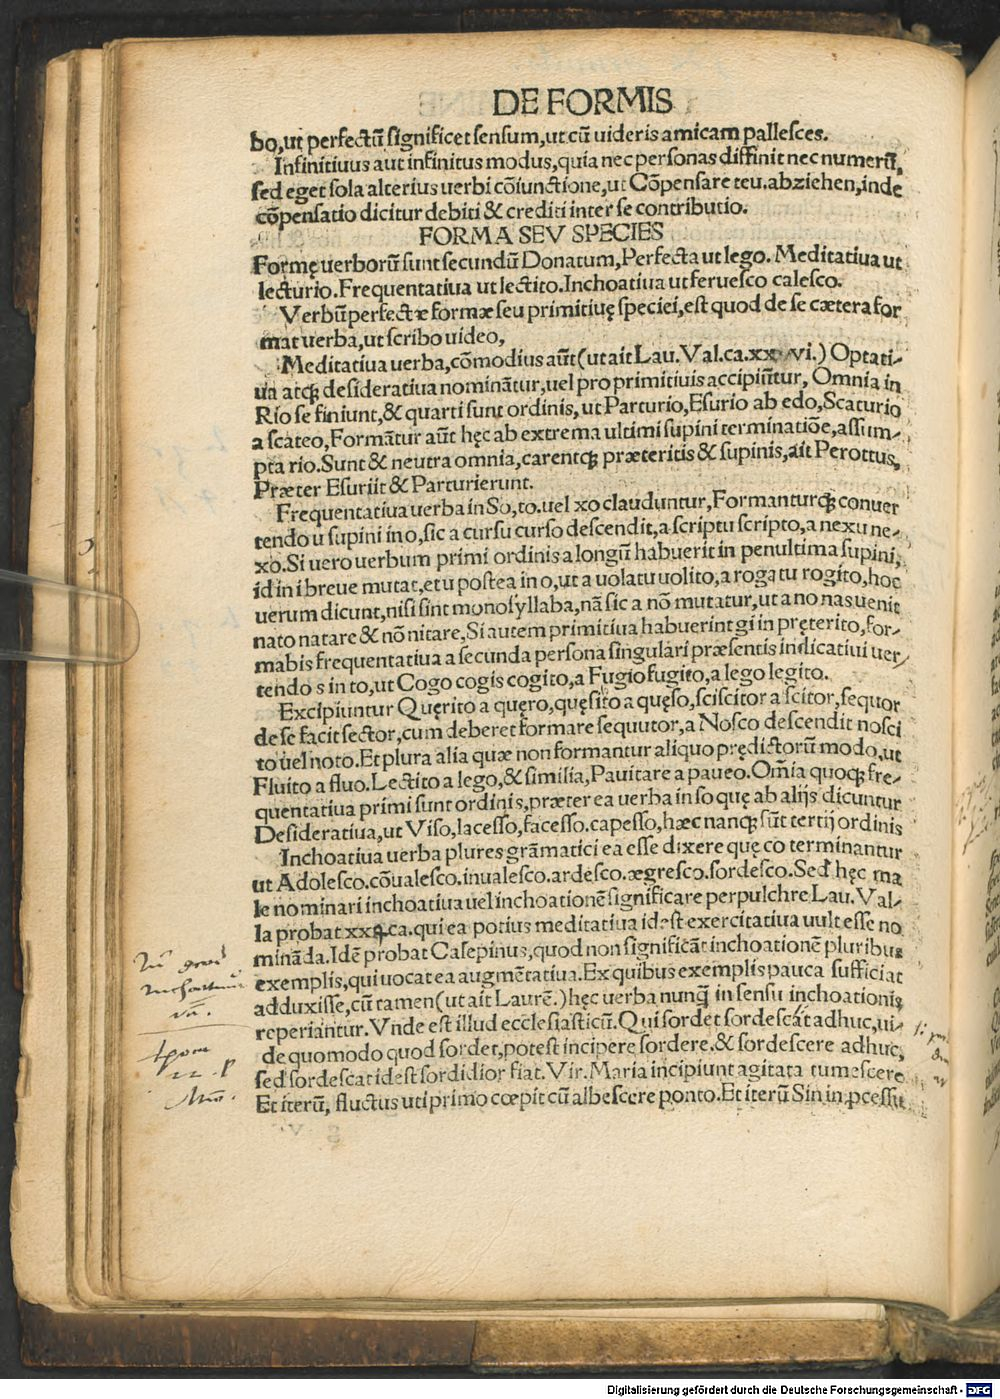 DE FORMIS
bo,ut perfectū significet sensum,ut cū uideris amicam pallesces.
Infinitiuus aut infinitus modus,quia nec personas diffinit nec numerū,
sed eget sola alterius uerbi cōiunctione,ut Cōpensare teu.abziehen,inde
cōpensatio dicitur debiti & crediti inter se contributio.
FORMA SEV SPECIES
Formę uerborū sunt secundū Donatum,Perfecta ut lego. Meditatiua ut
lecturio.Frequentatiua ut lectito.Inchoatiua ut feruesco calesco.
Verbū perfectæ formæ seu primitiuę speciei,est quod de se cætera for
mat uerba,ut scribo uideo,
Meditatiua uerba,cōmodius aūt (ut ait Lau.Val.ca.xx vi.) Optati-
ua atq; desideratiua nominātur,uel pro primitiuis accipiūtur, Omnia in
Rio se finiunt,& quarti sunt ordinis,ut Parturio,Esurio ab edo,Scaturio
a scateo,Formātur aūt hęc ab extrema ultimi supini terminatiōe,assum-
pta rio.Sunt & neutra omnia,carentq; præteritis & supinis,ait Perottus,
Præter Esuriit & Parturierunt.
Frequentatiua uerba in So,to.uel xo clauduntur,Formanturq; conuer
tendo u supini in o,sic a cursu curso descendit,a scriptu scripto,a nexu ne-
xo.Si uero uerbum primi ordinis a longū habuerit in penultima supini,
id in i breue mutat,et u postea in o,ut a uolatu uolito,a rogatu rogito,hoc
uerum dicunt,nisi sint monosyllaba,nā sic a nō mutatur,ut a no nas uenit
nato natare & nō nitare,Si autem primitiua habuerint gi in pręterito,for-
mabis frequentatiua a secunda persona singulari præsentis indicatiui uer
tendo s in to,ut Cogo cogis cogito,a Fugio fugito,a lego legito.
Excipiuntur Quęrito a quęro,quęsito a quęso,sciscitor a scitor,sequor
de se facit sector,cum deberet formare sequutor,a Nosco descendit nosci
to uel noto.Et plura alia quæ non formantur aliquo prędictorū modo,ut
Fluito a fluo.Lectito a lego,& similia,Pauitare a paueo.Om̄ia quoq; fre-
quentatiua primi sunt ordinis,præter ea uerba in so quę ab alijs dicuntur
Desideratiua,ut Viso,lacesso,facesso.capesso,hæc nanq; sūt tertij ordinis
Inchoatiua uerba plures grāmatici ea esse dixere quę co terminantur
ut Adolesco.cōualesco.inualesco.ardesco.ægresco.sordesco.Sed hęc ma
le nominari inchoatiua uel inchoationē significare perpulchre Lau.Val-
la probat xx ca.qui ea potius meditatiua idest exercitatiua uult esse no
mināda.Idē probat Calepinus,quod non significāt inchoationē pluribus
exemplis,qui uocat ea augmētatiua.Ex quibus exemplis pauca sufficiat
adduxisse,cū tamen (ut ait Laurē.) hęc uerba nunq̄ in sensu inchoationis
reperiantur.Vnde est illud ecclesiasticū.Qui sordet sordescat adhuc,ui-
de quomodo quod sordet,potest incipere sordere.& sordescere adhuc,
sed sordescat idest sordidior fiat.Vir.Maria incipiunt agitata tumescere
Et iterū, fluctus uti primo cœpit cū albescere ponto.Et iterū Sin in ꝓcessu
Digitalisierung gefördert durch die Deutsche Forschungsgemeinschaft - DFG